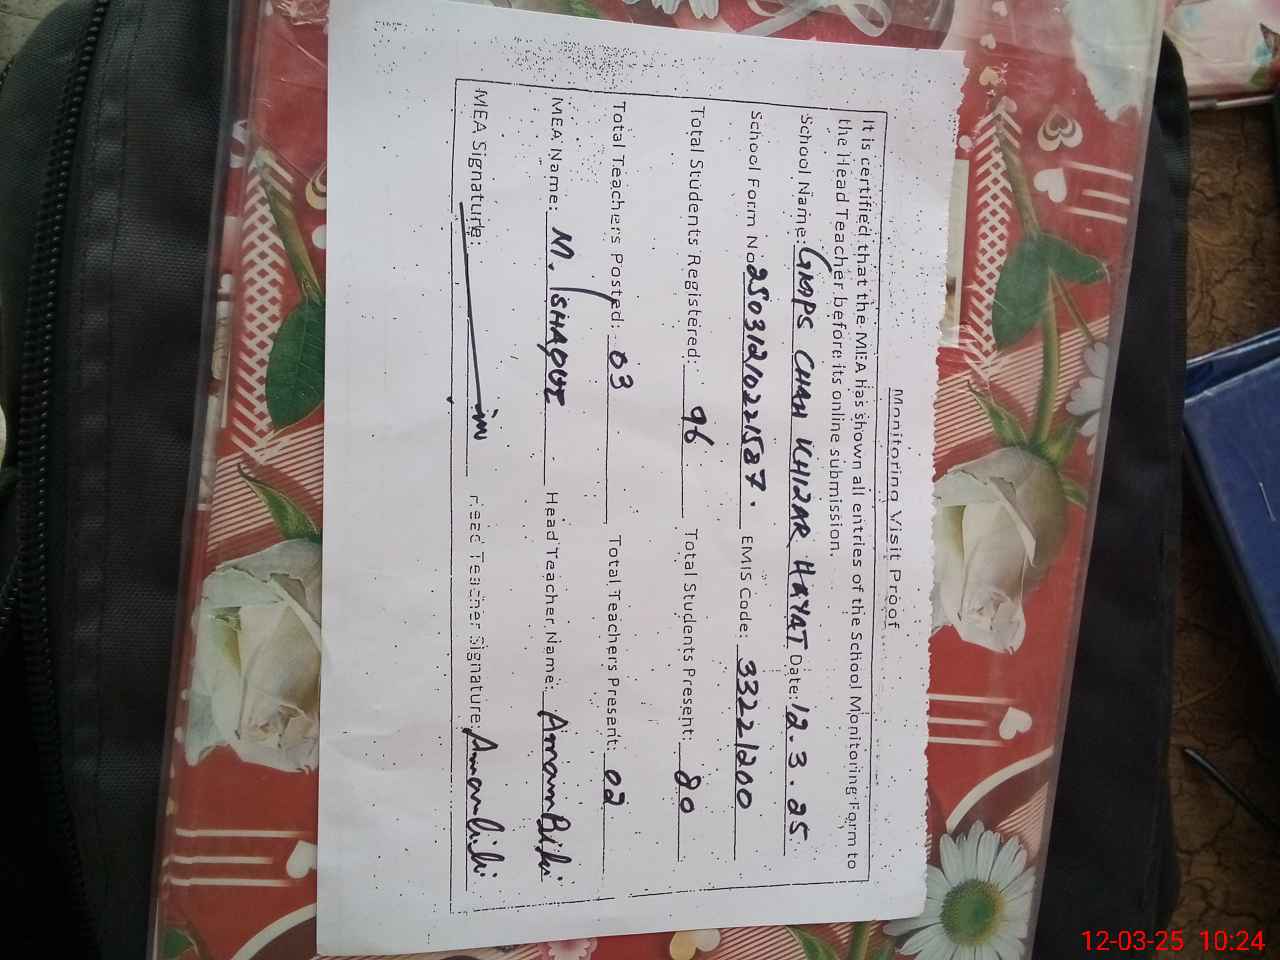 Monitoring Visit Proof
It is certified that the MEA has shown all entries of the School Monitoring Form to
the Head Teacher before its online submission.
School Name: GMPS CHAH KHIZAR HAYAT Date: 12.3.25
School Form No 25031210221587. EMIS Code: 33221200
Total Students Registered: 96 Total Students Present: 80
Total Teachers Posted: 03 Total Teachers Present: 02
MEA Name: M. ISHAQUE Head Teacher Name: Amam Bibi
MEA Signature: Head Teacher Signature:
12-03-25 10:24